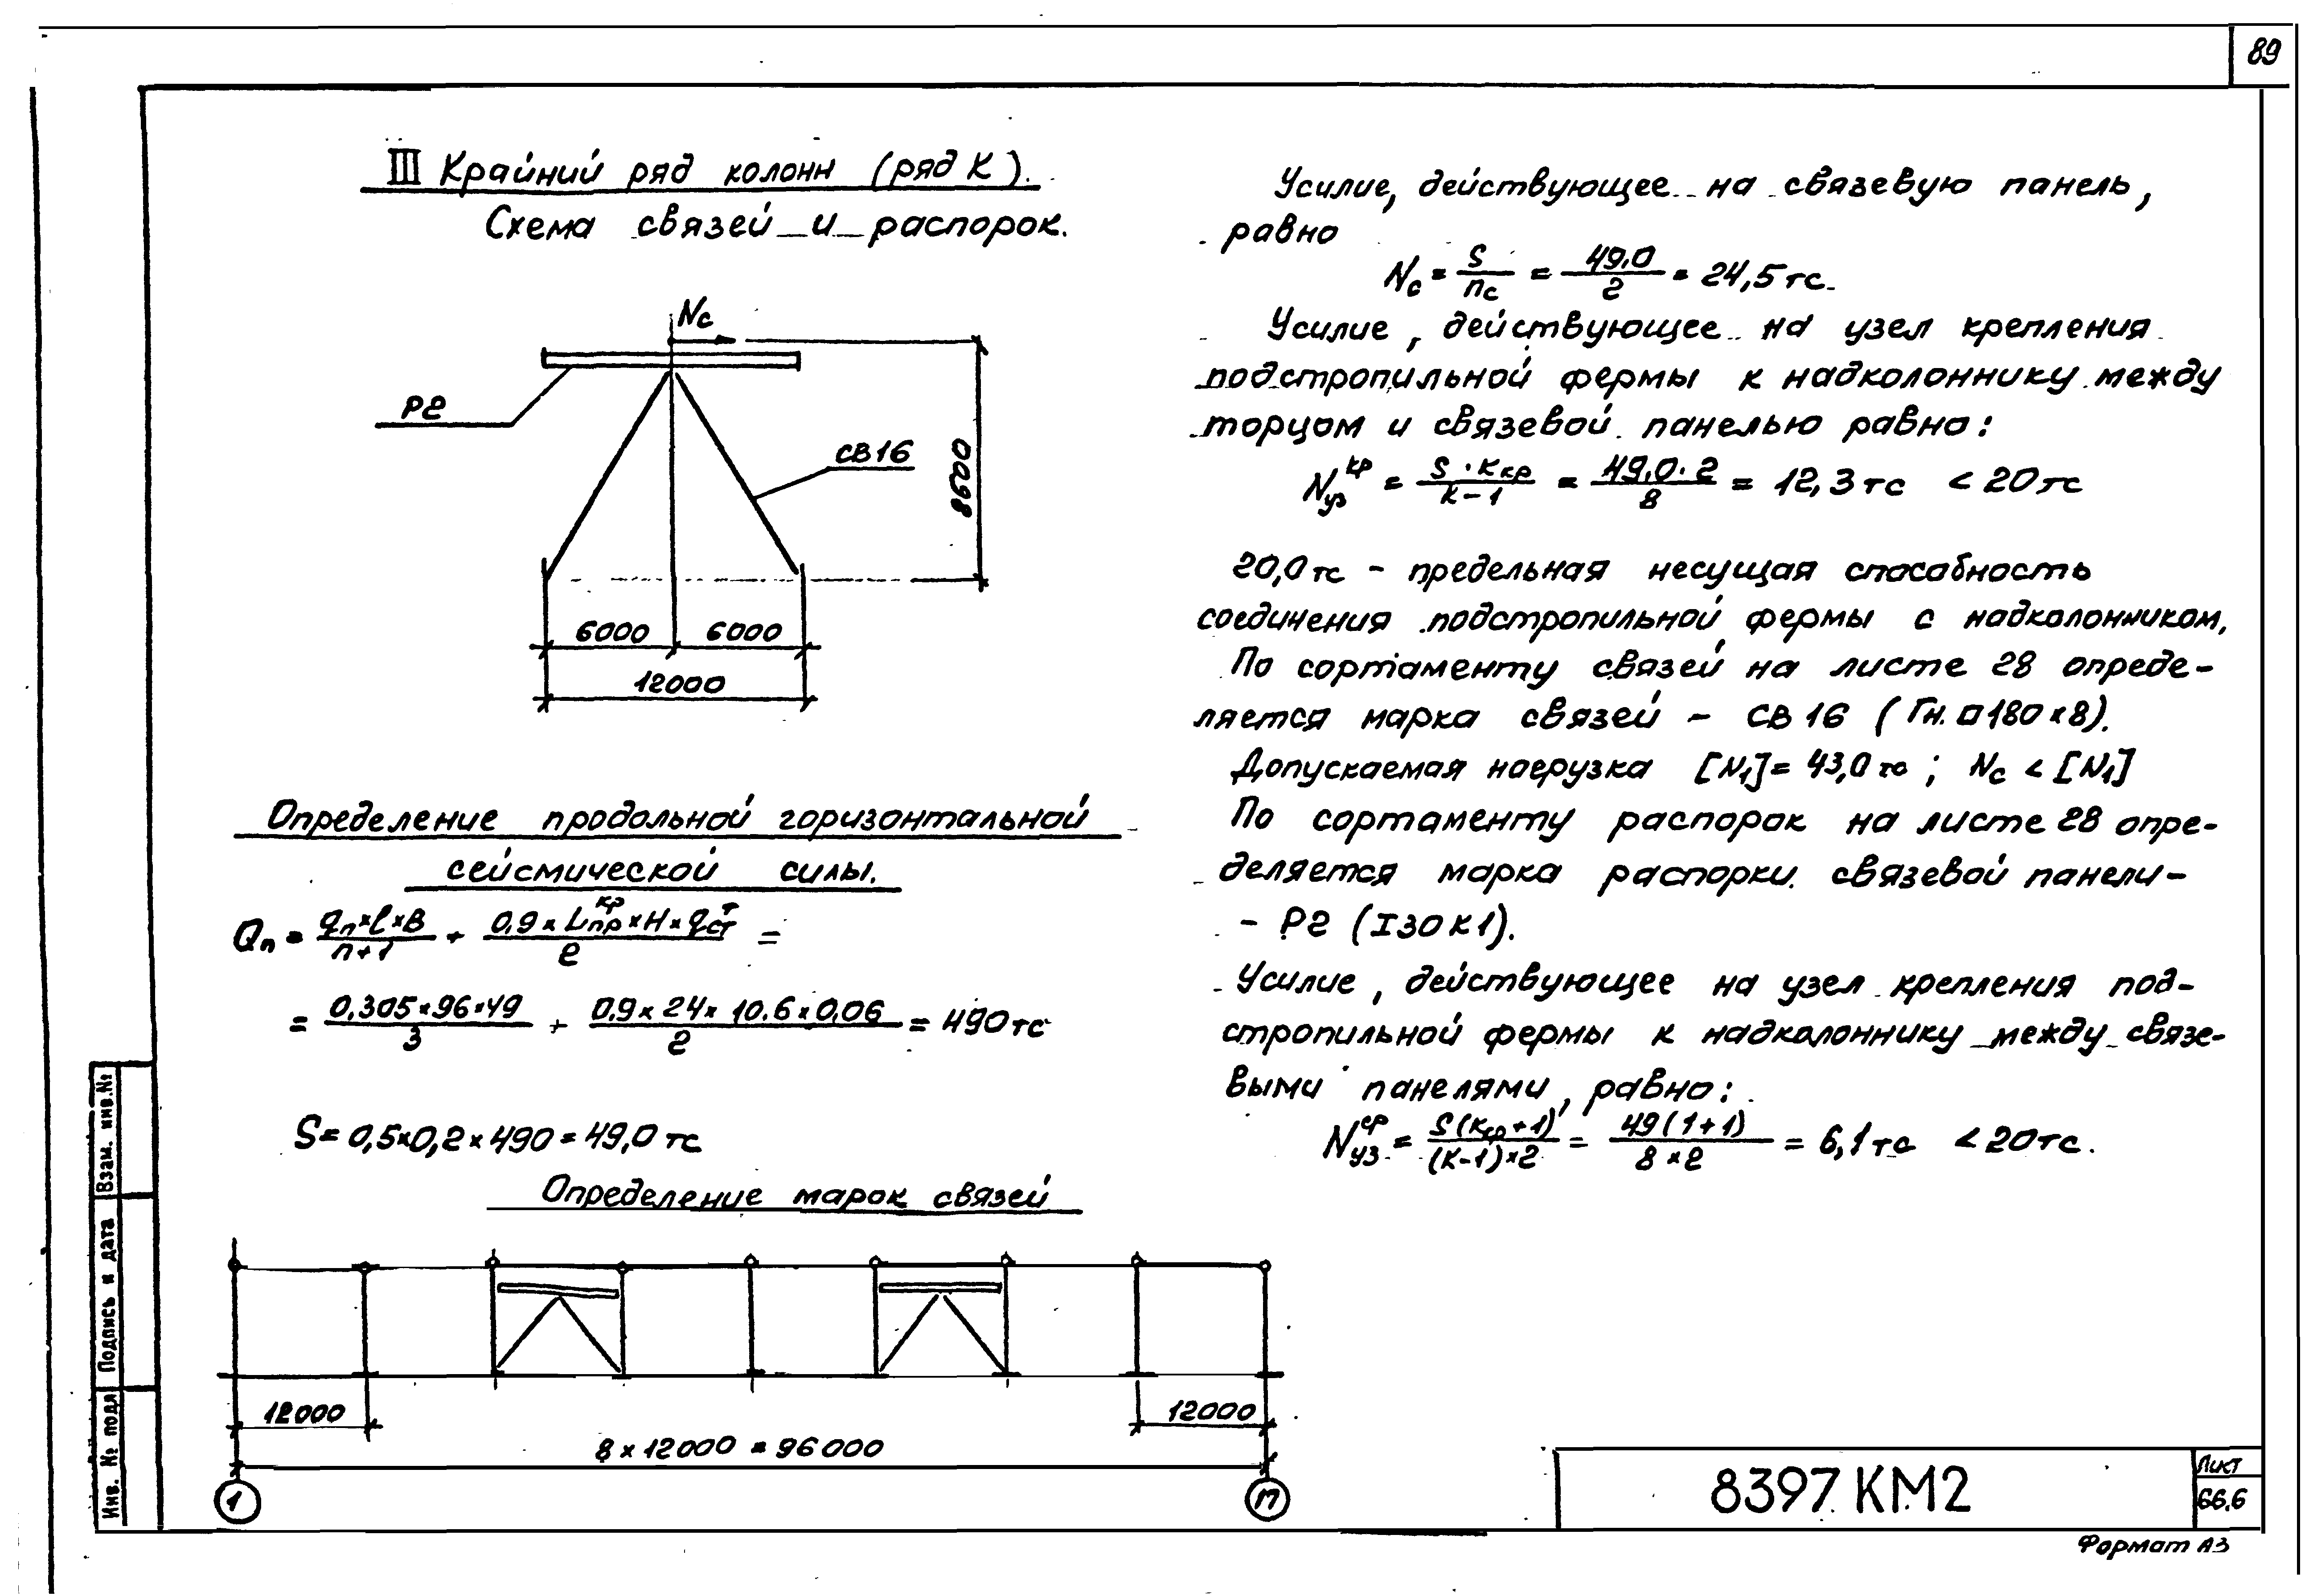 89
III Крайний ряд колонн (ряд К).
Схема связей и распорок.
Nс
Р2
СВ16
9800
6000 6000
12000
Определение продольной горизонтальной
сейсмической силы.
Qп = (qп × ℓ × B)/(n+1) + (0,9 × Lпр^кр × H × qст^т)/2 =
= (0,305 × 96 × 49)/3 + (0,9 × 24 × 10.6 × 0,06)/2 = 490 тс
S = 0,5 × 0,2 × 490 = 49,0 тс
Определение марок связей
12000 12000
8 × 12000 = 96000
1 17
Усилие, действующее на связевую панель,
равно
Nс = S/nс = 49,0/2 = 24,5 тс.
Усилие, действующее на узел крепления
подстропильной фермы к надколоннику между
торцом и связевой панелью равно:
Nуз^кр = (S · Kкр)/(K-1) = (49,0 · 2)/8 = 12,3 тс < 20 тс
20,0 тс - предельная несущая способность
соединения подстропильной фермы с надколонником.
По сортаменту связей на листе 28 опреде-
ляется марка связей - СВ 16 (Гн. □ 180 × 8).
Допускаемая нагрузка [N1] = 43,0 тс ; Nс < [N1]
По сортаменту распорок на листе 28 опре-
деляется марка распорки связевой панели-
- Р2 (I 30 К1).
Усилие, действующее на узел крепления под-
стропильной фермы к надколоннику между связе-
выми панелями, равно:
Nуз^ср = (S (Kср + 1))/((K-1) × 2) = (49 (1+1))/(8 × 2) = 6,1 тс < 20 тс.
Взам. инв.№
Подпись и дата
Инв. № подл
8397 КМ2
Лист
66.6
Формат А3